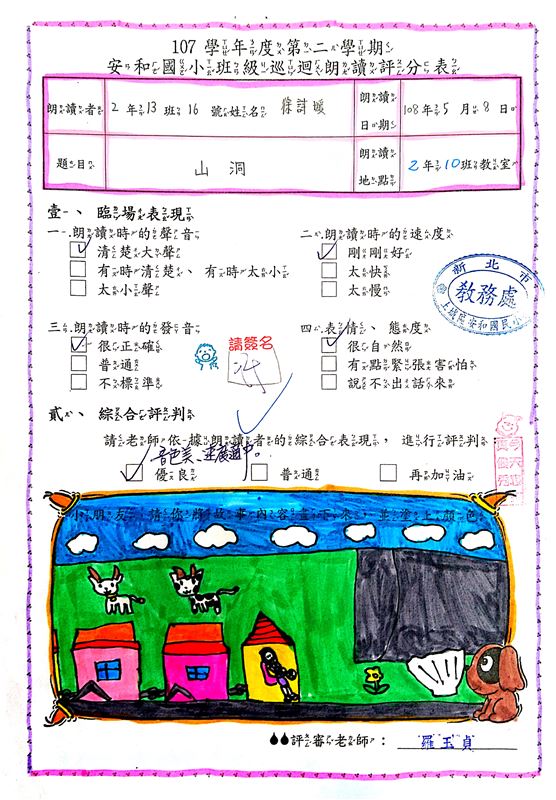 107 學年度第二學期
安和國小班級巡迴朗讀評分表
朗讀者 2 年 13 班 16 號姓名 徐詩暖 朗讀日期 108 年 5 月 8 日
題目 山洞 朗讀地點 2 年 10 班教室
壹、臨場表現
一.朗讀時的聲音 二.朗讀時的速度
清楚大聲 剛剛好
有時清楚、有時太小 太快
太小聲 太慢
新北市
教務處
土城區安和國民小
三.朗讀時的發音 四.表情、態度
很正確 很自然
普通 有點緊張害怕
不標準 說不出話來
請簽名
貳、綜合評判
請老師依據朗讀者的綜合表現,進行評判:
音色美、速度適中。
優良 普通 再加油
小朋友,請你將故事內容畫下來,並塗上顏色。
評審老師: 羅玉貞